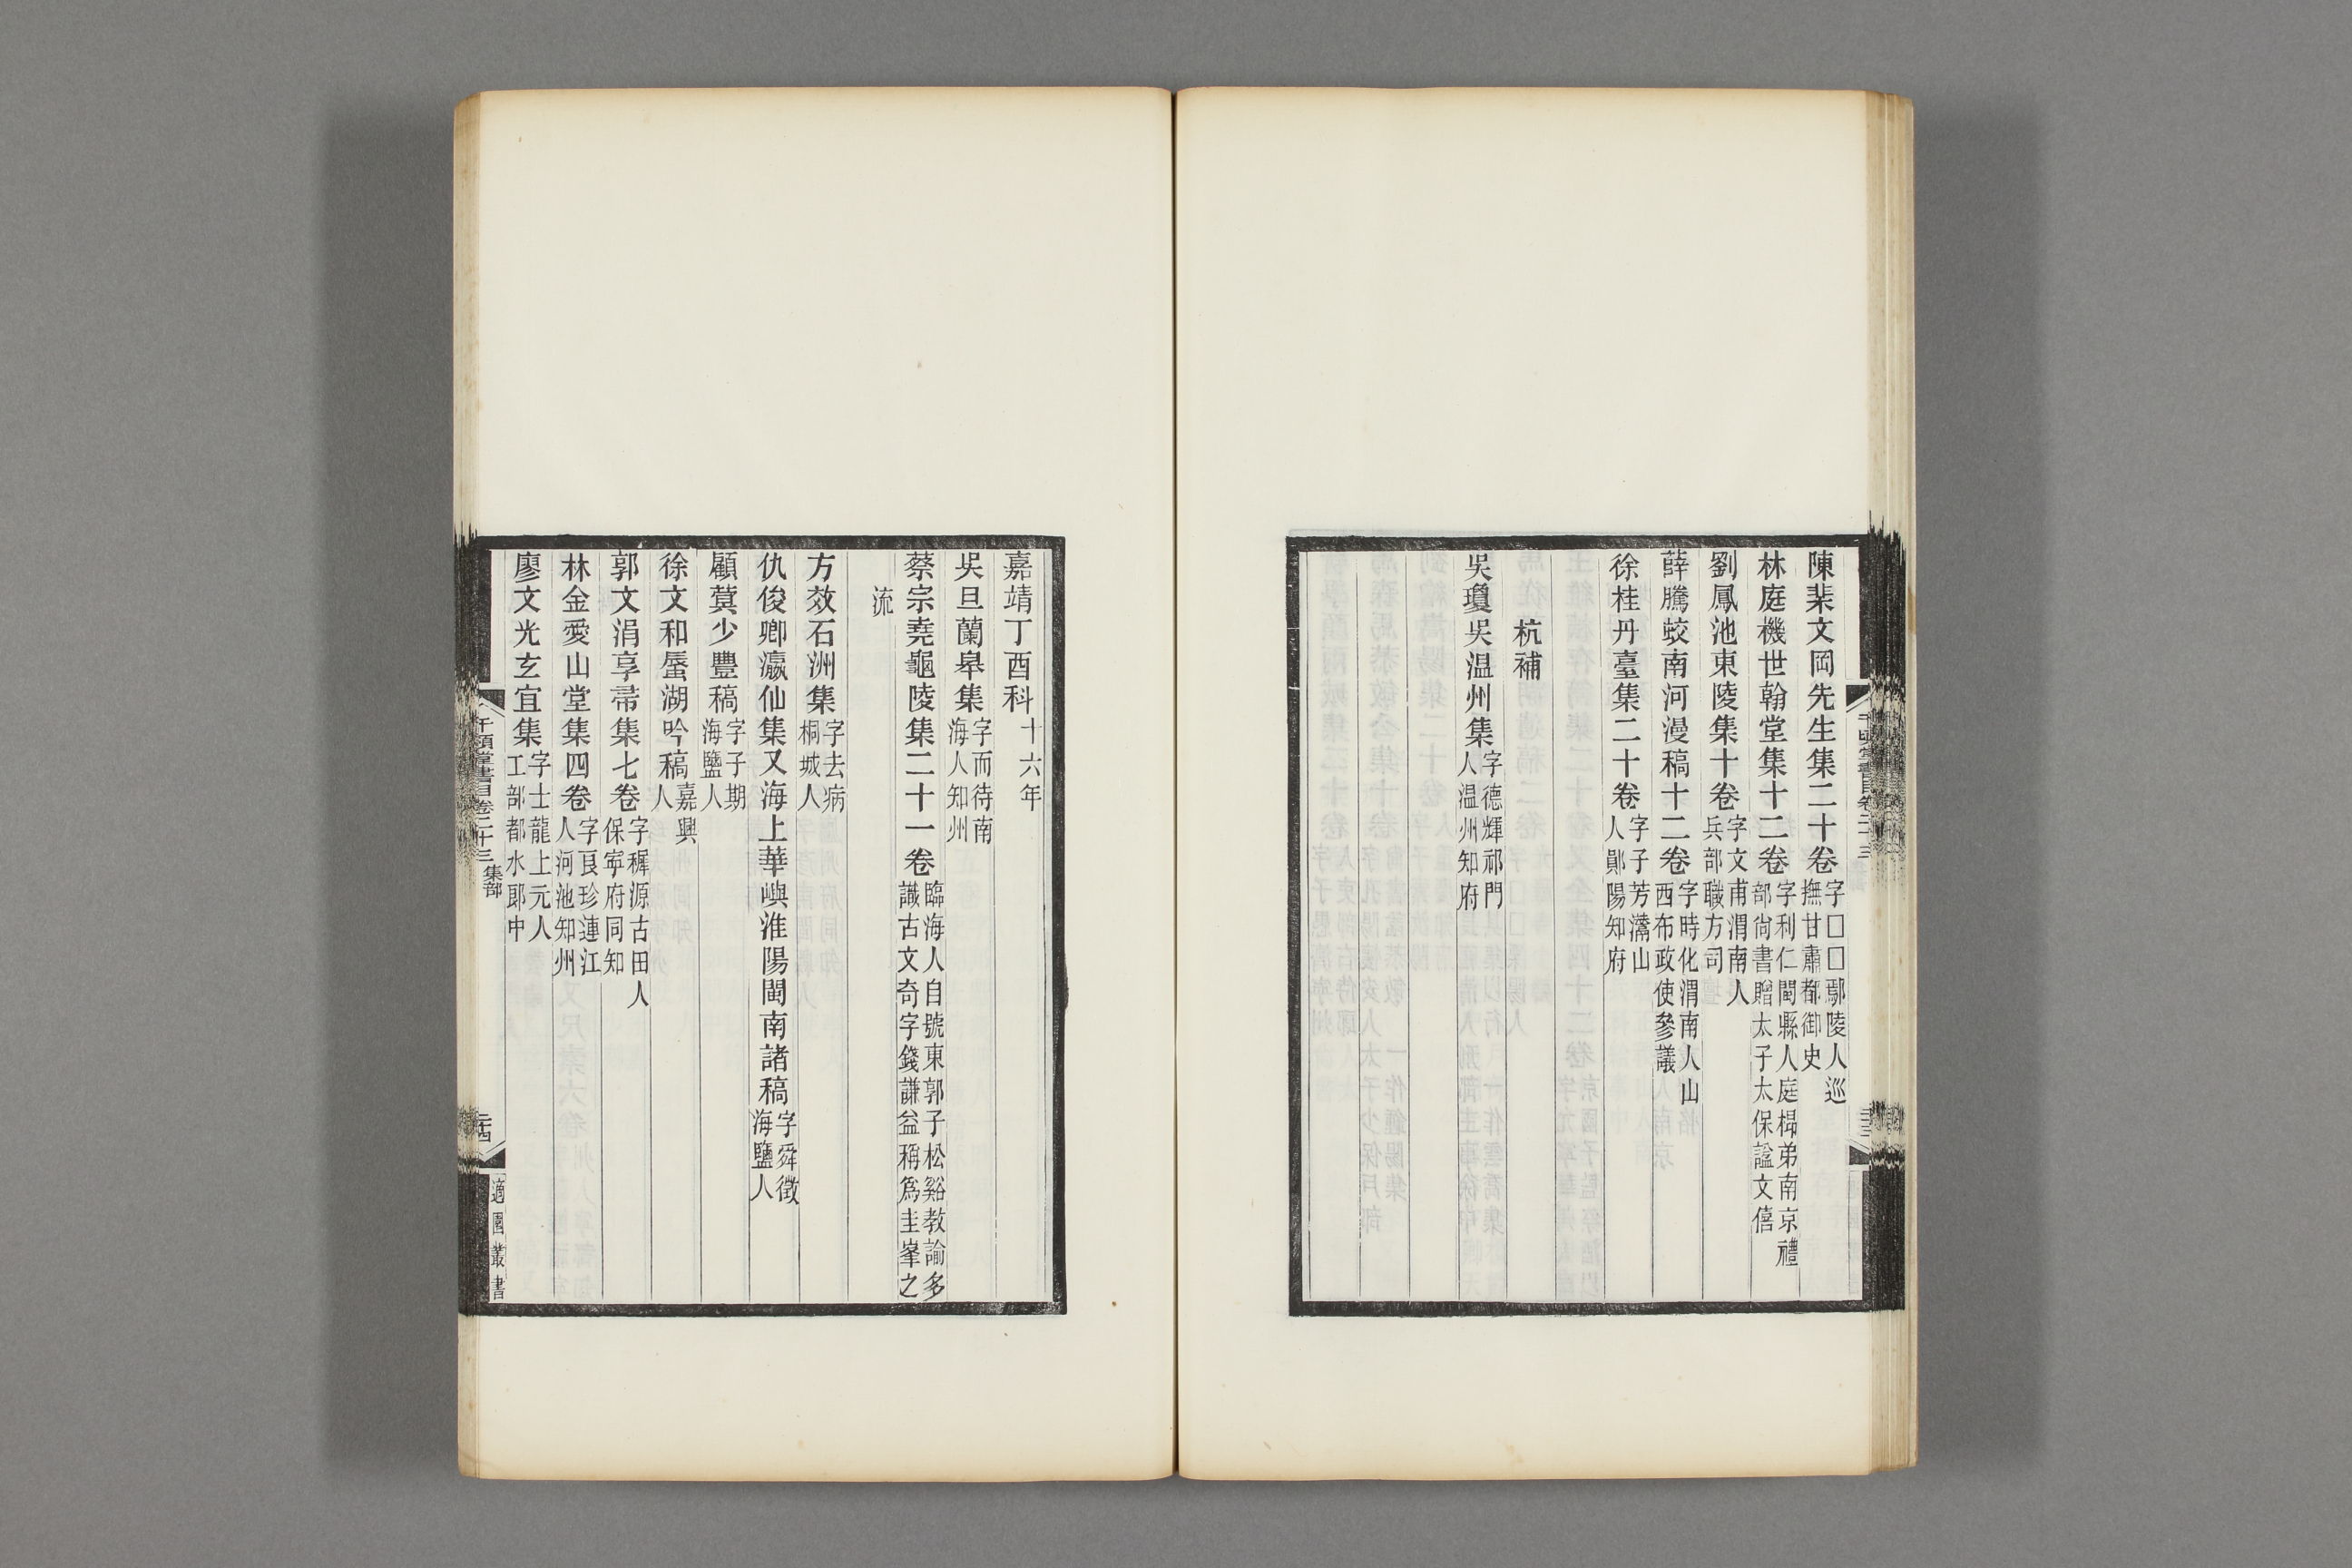 陳棐文岡先生集二十卷字□□鄢陵人巡撫甘肅都御史
林庭機世翰堂集十二卷字利仁閩縣人庭㭿弟南京禮部尙書贈太子太保諡文僖
劉鳳池東陵集十卷字文甫渭南人兵部職方司
薛騰蛟南河漫稿十二卷字時化渭南人山西布政使參議
徐桂丹臺集二十卷字子芳灊山人鄖陽知府
杭補
吳瓊吳温州集字德輝祁門人温州知府
嘉靖丁酉科十六年
吳旦蘭皋集字而待南海人知州
蔡宗堯龜陵集二十一卷臨海人自號東郭子松谿教諭多識古文奇字錢謙益稱爲圭峯之
流
方效石洲集字去病桐城人
仇俊卿瀛仙集又海上華嶼淮陽閩南諸稿字舜徵海鹽人
顧蓂少豐稿字子期海鹽人
徐文和蜃湖吟稿嘉興人
郭文涓享帚集七卷字穉源古田人保寧府同知
林金愛山堂集四卷字艮珍連江人河池知州
廖文光玄宜集字士龍上元人工部都水郎中
千頃堂書目卷二十三 集部
二十四
適園叢書